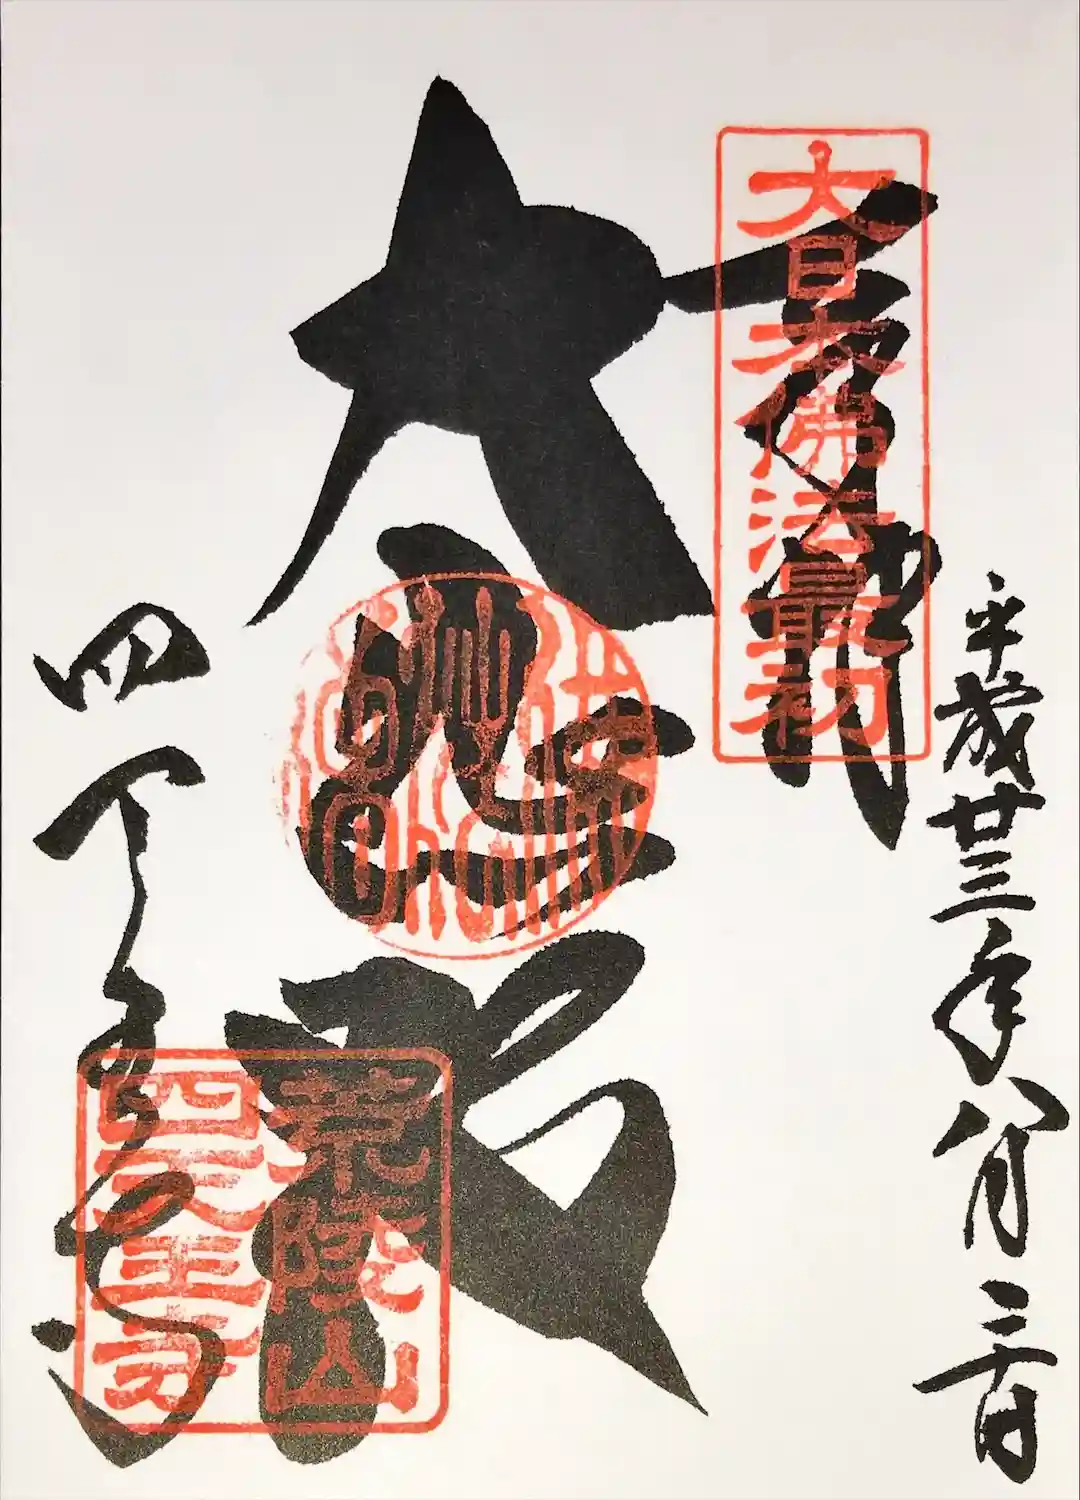 奉拝
大日本佛法最初
平成廿三年八月二十日
大悲殿
荒陵山
四天王寺
四天王寺